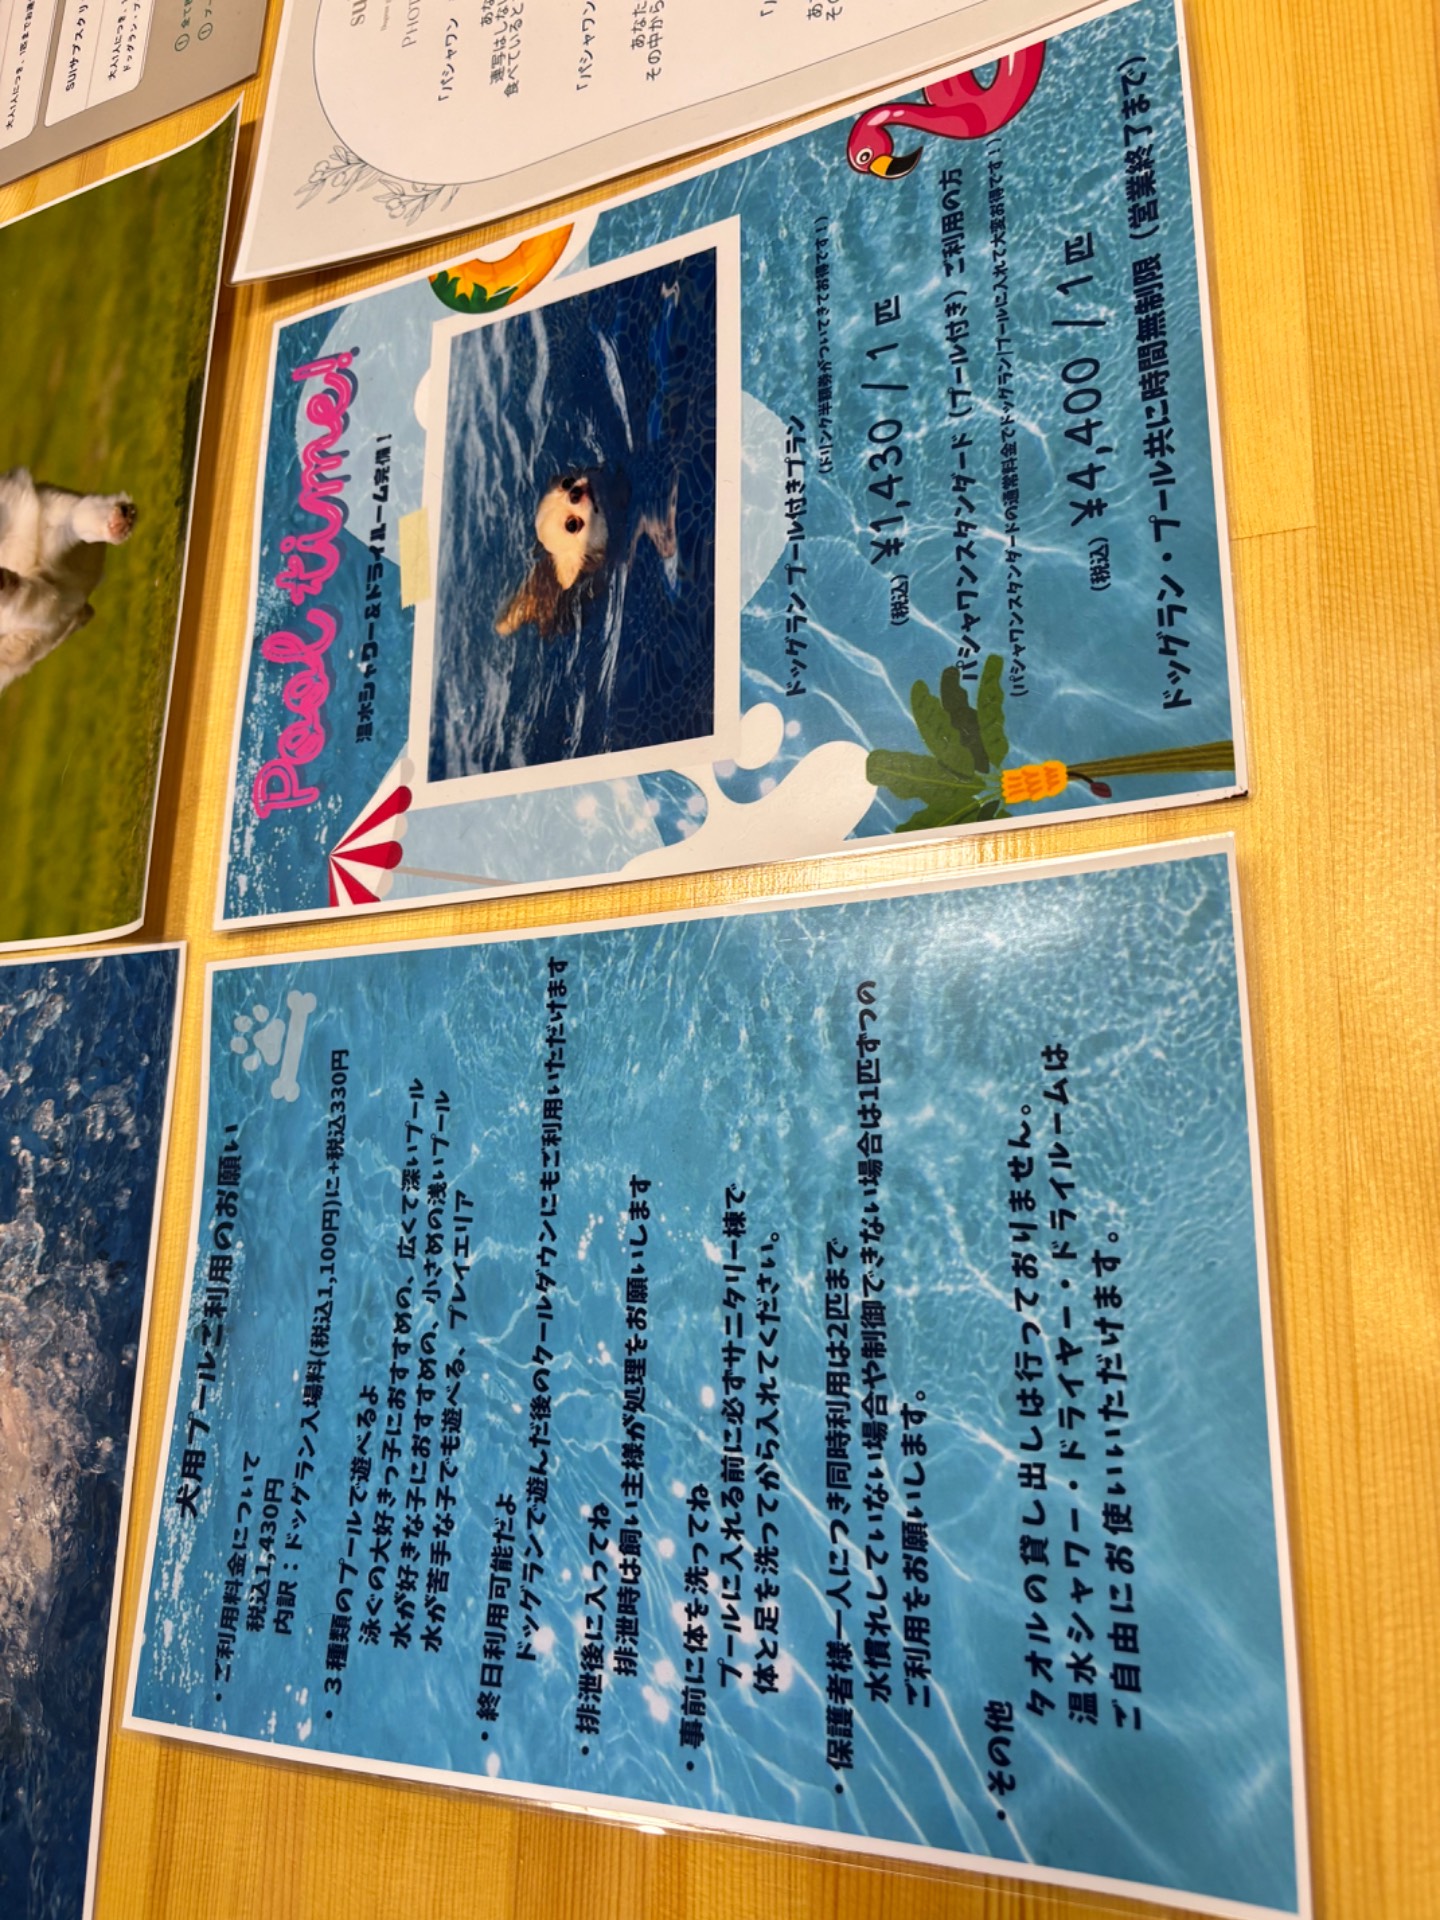 犬用プールご利用のお願い
・ご利用料金について
税込1,430円
内訳：ドッグラン入場料(税込1,100円)に+税込330円
・３種類のプールで遊べるよ
泳ぐの大好きっ子におすすめの、広くて深いプール
水が好きな子におすすめの、小さめの浅いプール
水が苦手な子でも遊べる、プレイエリア
・終日利用可能だよ
ドッグランで遊んだ後のクールダウンにもご利用いただけます
・排泄後に入ってね
排泄時は飼い主様が処理をお願いします
・事前に体を洗ってね
プールに入れる前に必ずサニタリー棟で
体と足を洗ってから入れてください。
・保護者様一人につき同時利用は2匹まで
水慣れしていない場合や制御できない場合は1匹ずつの
ご利用をお願いします。
・その他
タオルの貸し出しは行っておりません。
温水シャワー・ドライヤー・ドライルームは
ご自由にお使いいただけます。
Pool time!
温水シャワー&ドライルーム完備！
ドッグランプール付きプラン
(ドリンク半額券がついてきてお得です！)
(税込) ¥1,430 / 1 匹
パシャワンスタンダード（プール付き）ご利用の方
(パシャワンスタンダードの通常料金でドッグラン/プールに入れて大変お得です！)
(税込) ¥4,400 / 1 匹
ドッグラン・プール共に時間無制限（営業終了まで）
sui
PHO
「パシャワン
連写はしな
食べていると
「パシャワン
あなた
その中から
大人1人につき、1匹までお
SUIサブスクリ
大人1人につき、
ドッグラン・プ